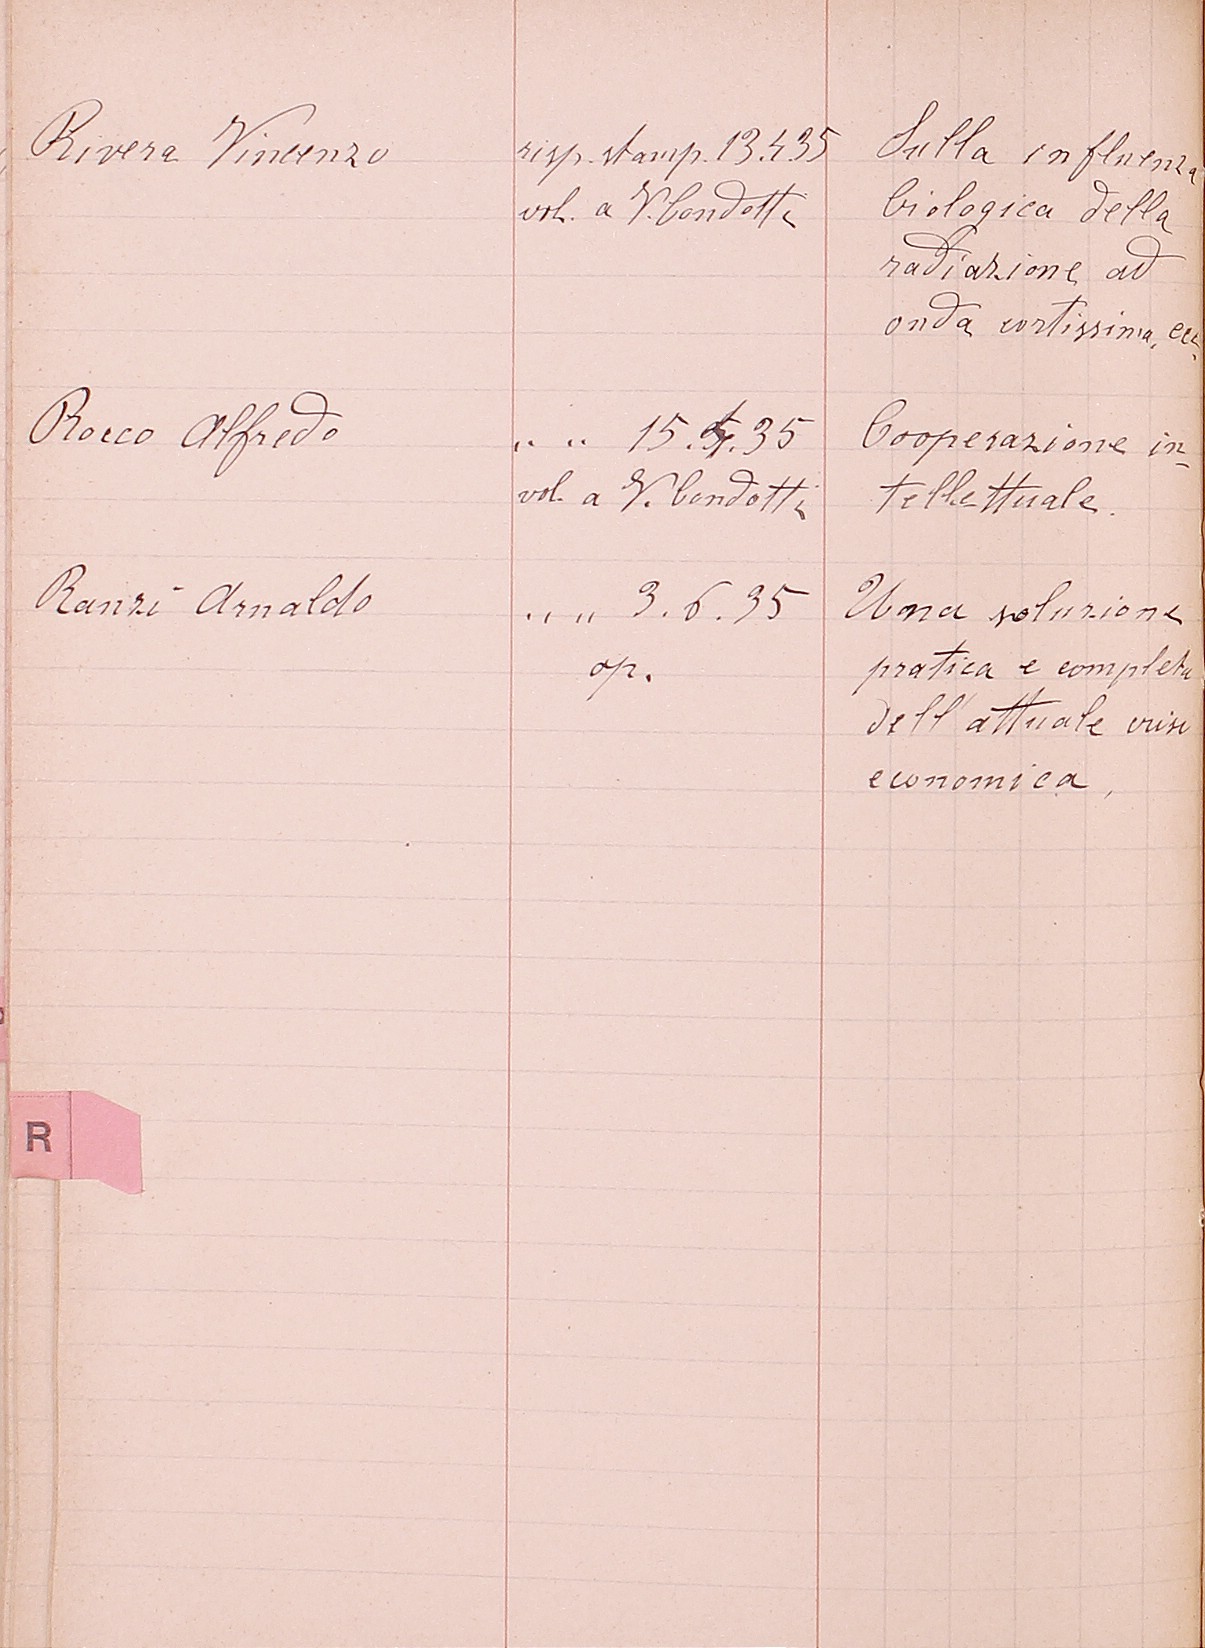 Rivera Vincenzo risp. stamp. 13.4.35 Sulla influenza
vol. a V. Condotti biologica della
radiazione ad
onda cortissima, ecc.
Rocco Alfredo " " 15.5.35 Cooperazione in-
vol. a V. Condotti tellettuale.
Ranzi Arnaldo " " 3.6.35 Una soluzione
op. pratica e completa
dell'attuale crisi
economica,
R